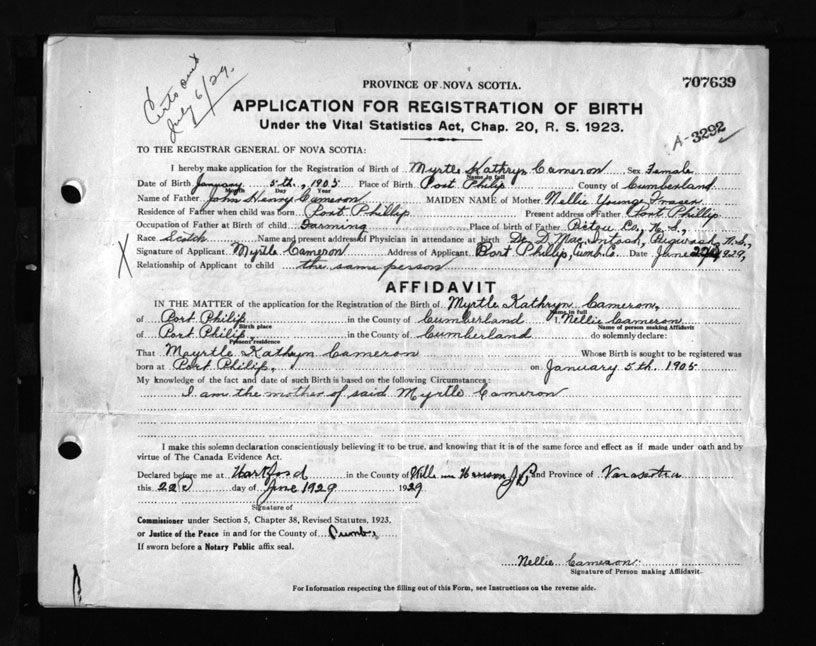 Certs out
July 6/29.
PROVINCE OF NOVA SCOTIA.
707639
APPLICATION FOR REGISTRATION OF BIRTH
Under the Vital Statistics Act, Chap. 20, R. S. 1923.
A-3292
TO THE REGISTRAR GENERAL OF NOVA SCOTIA:
I hereby make application for the Registration of Birth of Myrtle Kathryn Cameron Sex Female
Name in full
Date of Birth January 5th., 1905 Place of Birth Port Philip County of Cumberland
Month Day Year
Name of Father John Henry Cameron MAIDEN NAME of Mother Nellie Younge Fraser
Residence of Father when child was born Port Phillip Present address of Father Port Phillip
Occupation of Father at Birth of child Farming Place of birth of Father Pictou Co, N. S.,
Race Scotch Name and present address of Physician in attendance at birth Dr. D. MacIntosh, Pugwash, N. S.,
Signature of Applicant Myrtle Cameron Address of Applicant Port Phillip, Cumb. Co. Date June 22nd, 1929,
X
Relationship of Applicant to child the same person
AFFIDAVIT
IN THE MATTER of the application for the Registration of the Birth of Myrtle Kathryn Cameron,
Name in full
of Port Philip in the County of Cumberland I, Nellie Cameron
Birth place Name of person making Affidavit
of Port Philip in the County of Cumberland do solemnly declare:
Present residence
That Mayrtle Kathryn Cameron Whose Birth is sought to be registered was
born at Port Philip, on January 5th. 1905
My knowledge of the fact and date of such Birth is based on the following Circumstances:
I am the mother of said Myrtle Cameron
I make this solemn declaration conscientiously believing it to be true, and knowing that it is of the same force and effect as if made under oath and by
virtue of The Canada Evidence Act.
Declared before me at Hartford in the County of J P, and Province of
this 22 d day of June 1929 1929
Signature of
Commissioner under Section 5, Chapter 38, Revised Statutes, 1923,
or Justice of the Peace in and for the County of
If sworn before a Notary Public affix seal.
Nellie Cameron
Signature of Person making Affidavit.
For Information respecting the filling out of this Form, see Instructions on the reverse side.